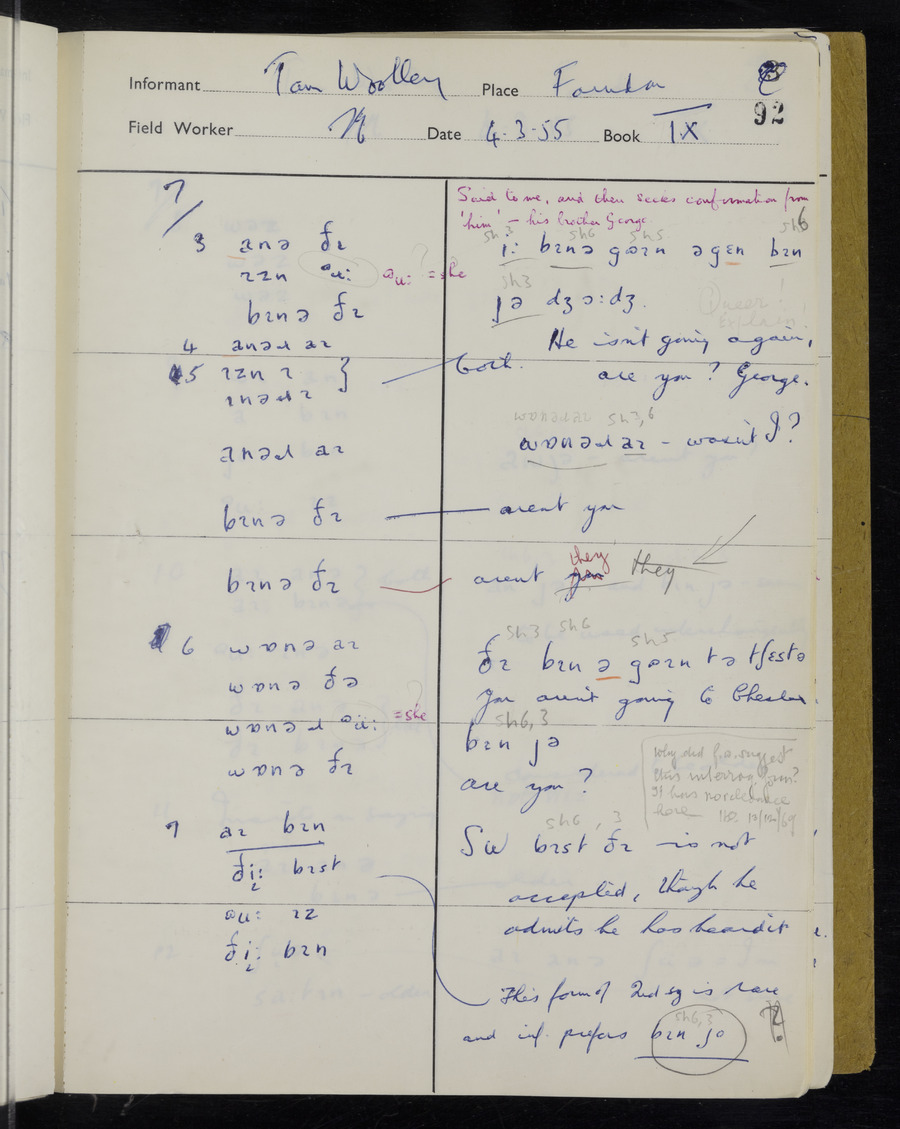 Informant Tom Woolley Place Farndon
92
Field Worker Date 4-3-55 Book IX
7/
Said to me, and then seeks confirmation from
'him' – his brother George.
sh3 sh6 sh5 sh6
3 anə ðɪ
i: bɪnə gəɪn əgɛn bɪn
ɪzn əu: əu: ? = she
sh3
jə dʒɔ:dʒ.
Queer!
Explain!
bɪnə ðɪ
He isn't going again,
4 anəɹ aɪ
5 ɪzn ɪ } both.
are you? George.
sh3,6
wɒnəɹ aɪ – wasn't I?
anəɹ aɪ
bɪnə ðɪ — arent you
bɪnə ðɪ arent you they they
6 wɒnə aɪ
sh3 sh6 sh5
ðɪ bɪn ə gəɪn tə tʃɛstə
wɒnə ðə
You aren't going to Chester.
wɒnəɹ əü: ? = she
sh6,3
bɪn jə
wɒnə ðɪ
are you?
why did f.w. suggest
this interrog. form?
It has no relevance
here
7 aɪ bɪn
sh6, 3
SW bɪst ðɪ is not
ði: bɪst
accepted, though he
əu: ɪz
admits he has heard it
ði: bɪn
This form of 2nd sg is rare
and inf. prefers bɪn jə
sh6,3
?!